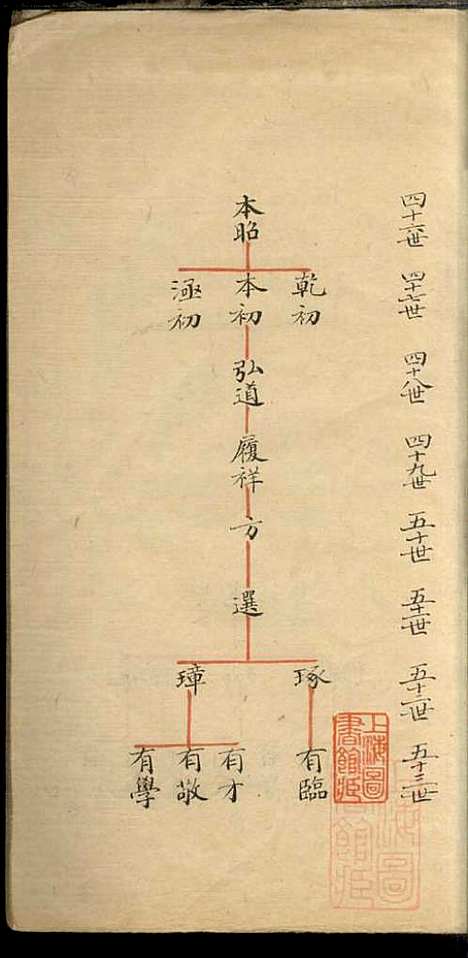 四十六世 四十七世 四十八世 四十九世 五十世 五十一世 五十二世 五十三世
本昭
乾初
本初
涵初
弘道
履祥
方
選
琢
璋
有臨
有才
有敬
有學
上海圖書館藏